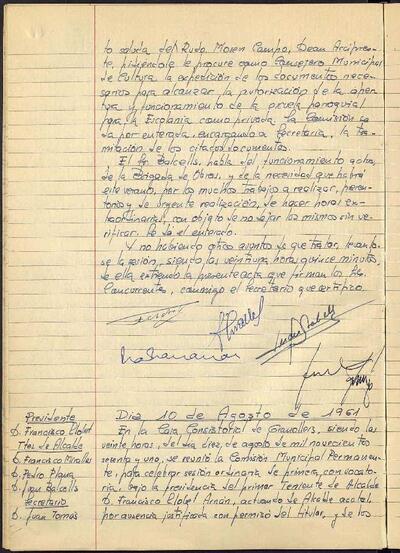 to saluda del Rvdo. Moren Campo, Dean Arcipres-
te, pidiendole le procure como Consejero Municipal
de Cultura la expedición de los documentos nece-
sarios para alcanzar la autorización de la aper-
tura y funcionamiento de la escuela parroquial
para la Escolania como privada. La Comisión se
da por enterada, encargando a Secretaria, la tra-
mitación de los citados documentos.
El Sr. Balcells, habla del funcionamiento
de la Brigada de Obras, y de la necesidad que habrá
este verano, por los muchos trabajo a realizar, peren-
torios y de urgente realización, de hacer horas ex-
traordinarias, con objeto de no dejar los mismos sin ve-
rificar. Se da el enterado.
Y no habiendo otros asuntos de que tratar, levanto-
se la sesión, siendo las veintiuna horas quince minutos
de ella extiendo la presente acta que firman los Sres.
Concurrentes, conmigo el Secretario que certifico.
Presidente
D. Francisco Llobet
Ttes de Alcalde
D. Francisco Mirallas
D. Pedro Plana
D. Juan Balcells
Secretario
D. Juan Tomás
Dia 10 de Agosto de 1961
En la Casa Consistorial de Granollers, siendo las
veinte horas, del dia diez, de agosto de mil novecientos
sesenta y uno, se reunió la Comisión Municipal Permanen-
te, para celebrar sesión ordinaria de primera, convocato-
ria, bajo la presidencia del primer Teniente de Alcalde
D. Francisco Llobet Arnán, actuando de Alcalde acctal.
por ausencia justificada con permiso del titular, y de los